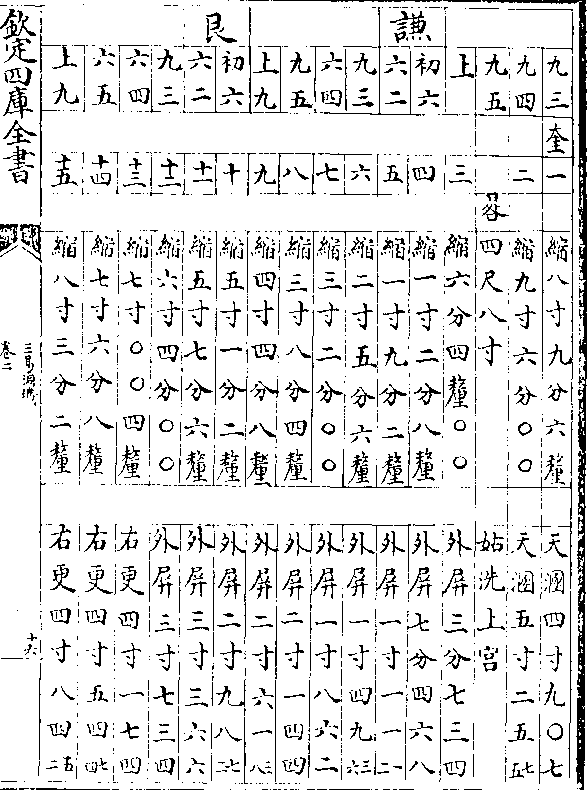 九三 奎一 縮八寸九分六釐 天溷四寸九〇七
九四 二 縮九寸六分〇〇 天溷五寸二五五七
九五 四尺八寸 姑洗上宮
上 三 縮六分四釐〇〇 外屏三分七三四
謙 初六 四 縮一寸二分八釐 外屏七分四六八
六二 五 縮一寸九分二釐 外屏一寸一二一
九三 六 縮二寸五分六釐 外屏一寸四九六三
六四 七 縮三寸二分〇〇 外屏一寸八六二
九五 八 縮三寸八分四釐 外屏二寸一四四
上九 九 縮四寸四分八釐 外屏二寸六一八三
艮 初六 十 縮五寸一分二釐 外屏二寸九八七二
六二 十一 縮五寸七分六釐 外屏三寸三六六
九三 十二 縮六寸四分〇〇 外屏三寸七三四
六四 十三 縮七寸〇〇四釐 右更四寸一七四
六五 十四 縮七寸六分八釐 右更四寸五四四七
上九 十五 縮八寸三分二釐 右更四寸八四二五
欽定四庫全書
三易洞璣
卷二
十六